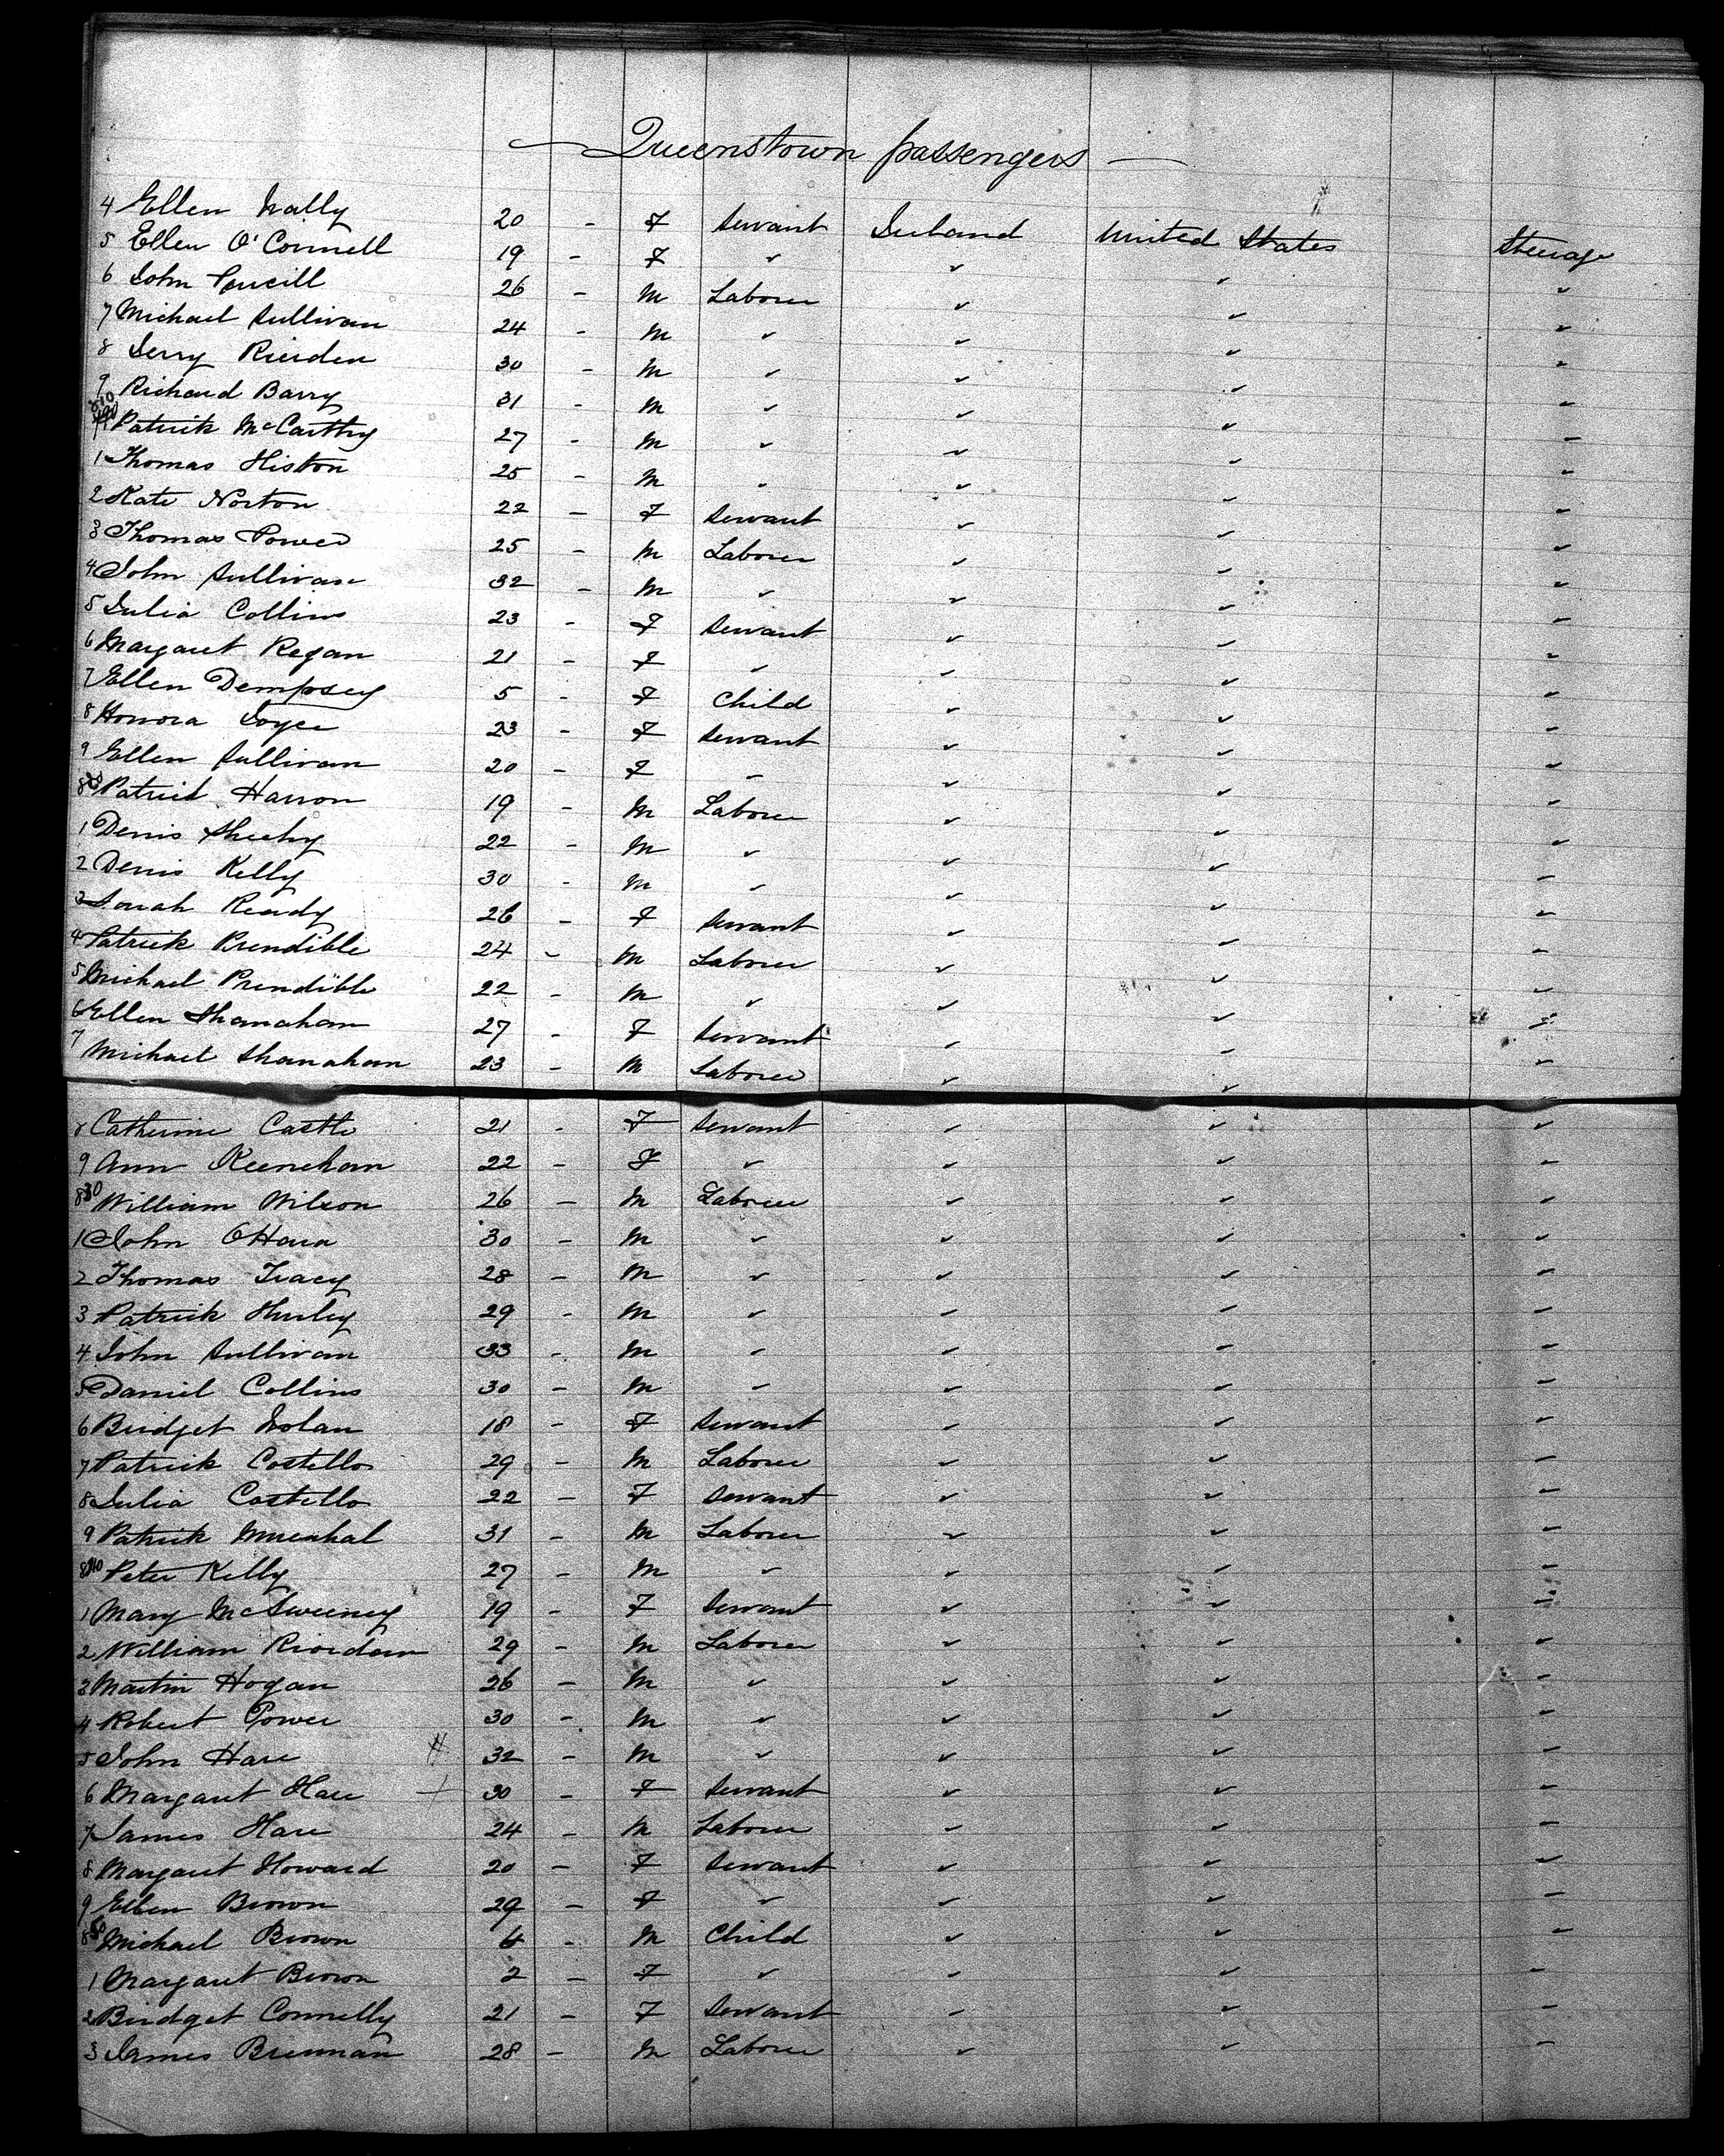 Queenstown passengers
4 Ellen Nally 20 - F Servant Ireland United States Steerage
5 Ellen O'Connell 19 - F " " " "
6 John 26 - M Laborer " " "
7 Michael Sullivan 24 - M " " " "
8 Jerry Rierden 30 - M " " " "
9 Richard Barry 31 - M " " " "
810 Patrick McCarthy 27 - M " " " "
1 Thomas Histon 25 - M " " " "
2 Kate Norton 22 - F Servant " " "
3 Thomas Power 25 - M Laborer " " "
4 John Sullivan 32 - M " " " "
5 Julia Collins 23 - F Servant " " "
6 Margaret Regan 21 - F " " " "
7 Ellen Dempsey 5 - F Child " " "
8 Honora Joyce 23 - F Servant " " "
9 Ellen Sullivan 20 - F " " " "
820 Patrick Harron 19 - M Laborer " " "
1 Denis Sheehy 22 - M " " " "
2 Denis Kelly 30 - M " " " "
3 Ready 26 - F Servant " " "
4 Patrick Prendible 24 - M Laborer " " "
5 Michael Prendible 22 - M " " " "
6 Ellen Shanahan 27 - F Servant " " "
7 Michael Shanahan 23 - M Laborer " " "
8 Catherine Castle 21 - F Servant " " "
9 Ann Keenehan 22 - F " " " "
830 William Wilson 26 - M Laborer " " "
1 John O'Hara 30 - M " " " "
2 Thomas Tracy 28 - M " " " "
3 Patrick Hurley 29 - M " " " "
4 John Sullivan 33 - M " " " "
5 Daniel Collins 30 - M " " " "
6 Bridget Nolan 18 - F Servant " " "
7 Patrick Costello 29 - M Laborer " " "
8 Julia Costello 22 - F Servant " " "
9 Patrick 31 - M Laborer " " "
840 Peter Kelly 27 - M " " " "
1 Mary McSweeney 19 - F Servant " " "
2 William Riordan 29 - M Laborer " " "
3 Martin Hogan 26 - M " " " "
4 Robert Power 30 - M " " " "
5 John Hare 32 - M " " " "
6 Margaret Hare 30 - F Servant " " "
7 James Hare 24 - M Laborer " " "
8 Margaret Howard 20 - F Servant " " "
9 Ellen Brown 29 - F " " " "
850 Michael Brown 6 - M Child " " "
1 Margaret Brown 2 - F " " " "
2 Bridget Connelly 21 - F Servant " " "
3 James Brennan 28 - M Laborer " " "